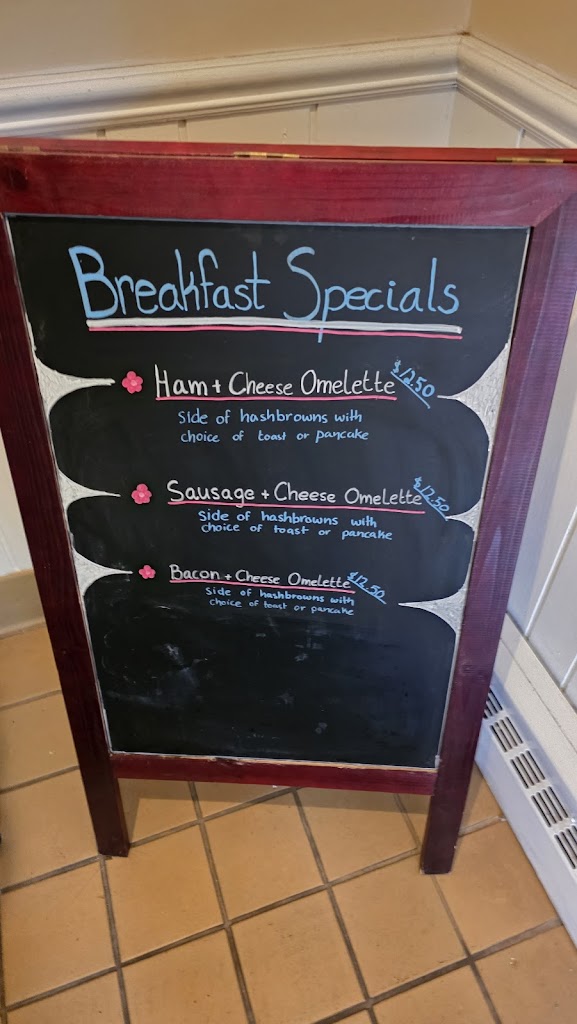 Breakfast Specials
Ham + Cheese Omelette $12.50
Side of hashbrowns with
choice of toast or pancake
Sausage + Cheese Omelette $12.50
Side of hashbrowns with
choice of toast or pancake
Bacon + Cheese Omelette $12.50
Side of hashbrowns with
choice of toast or pancake